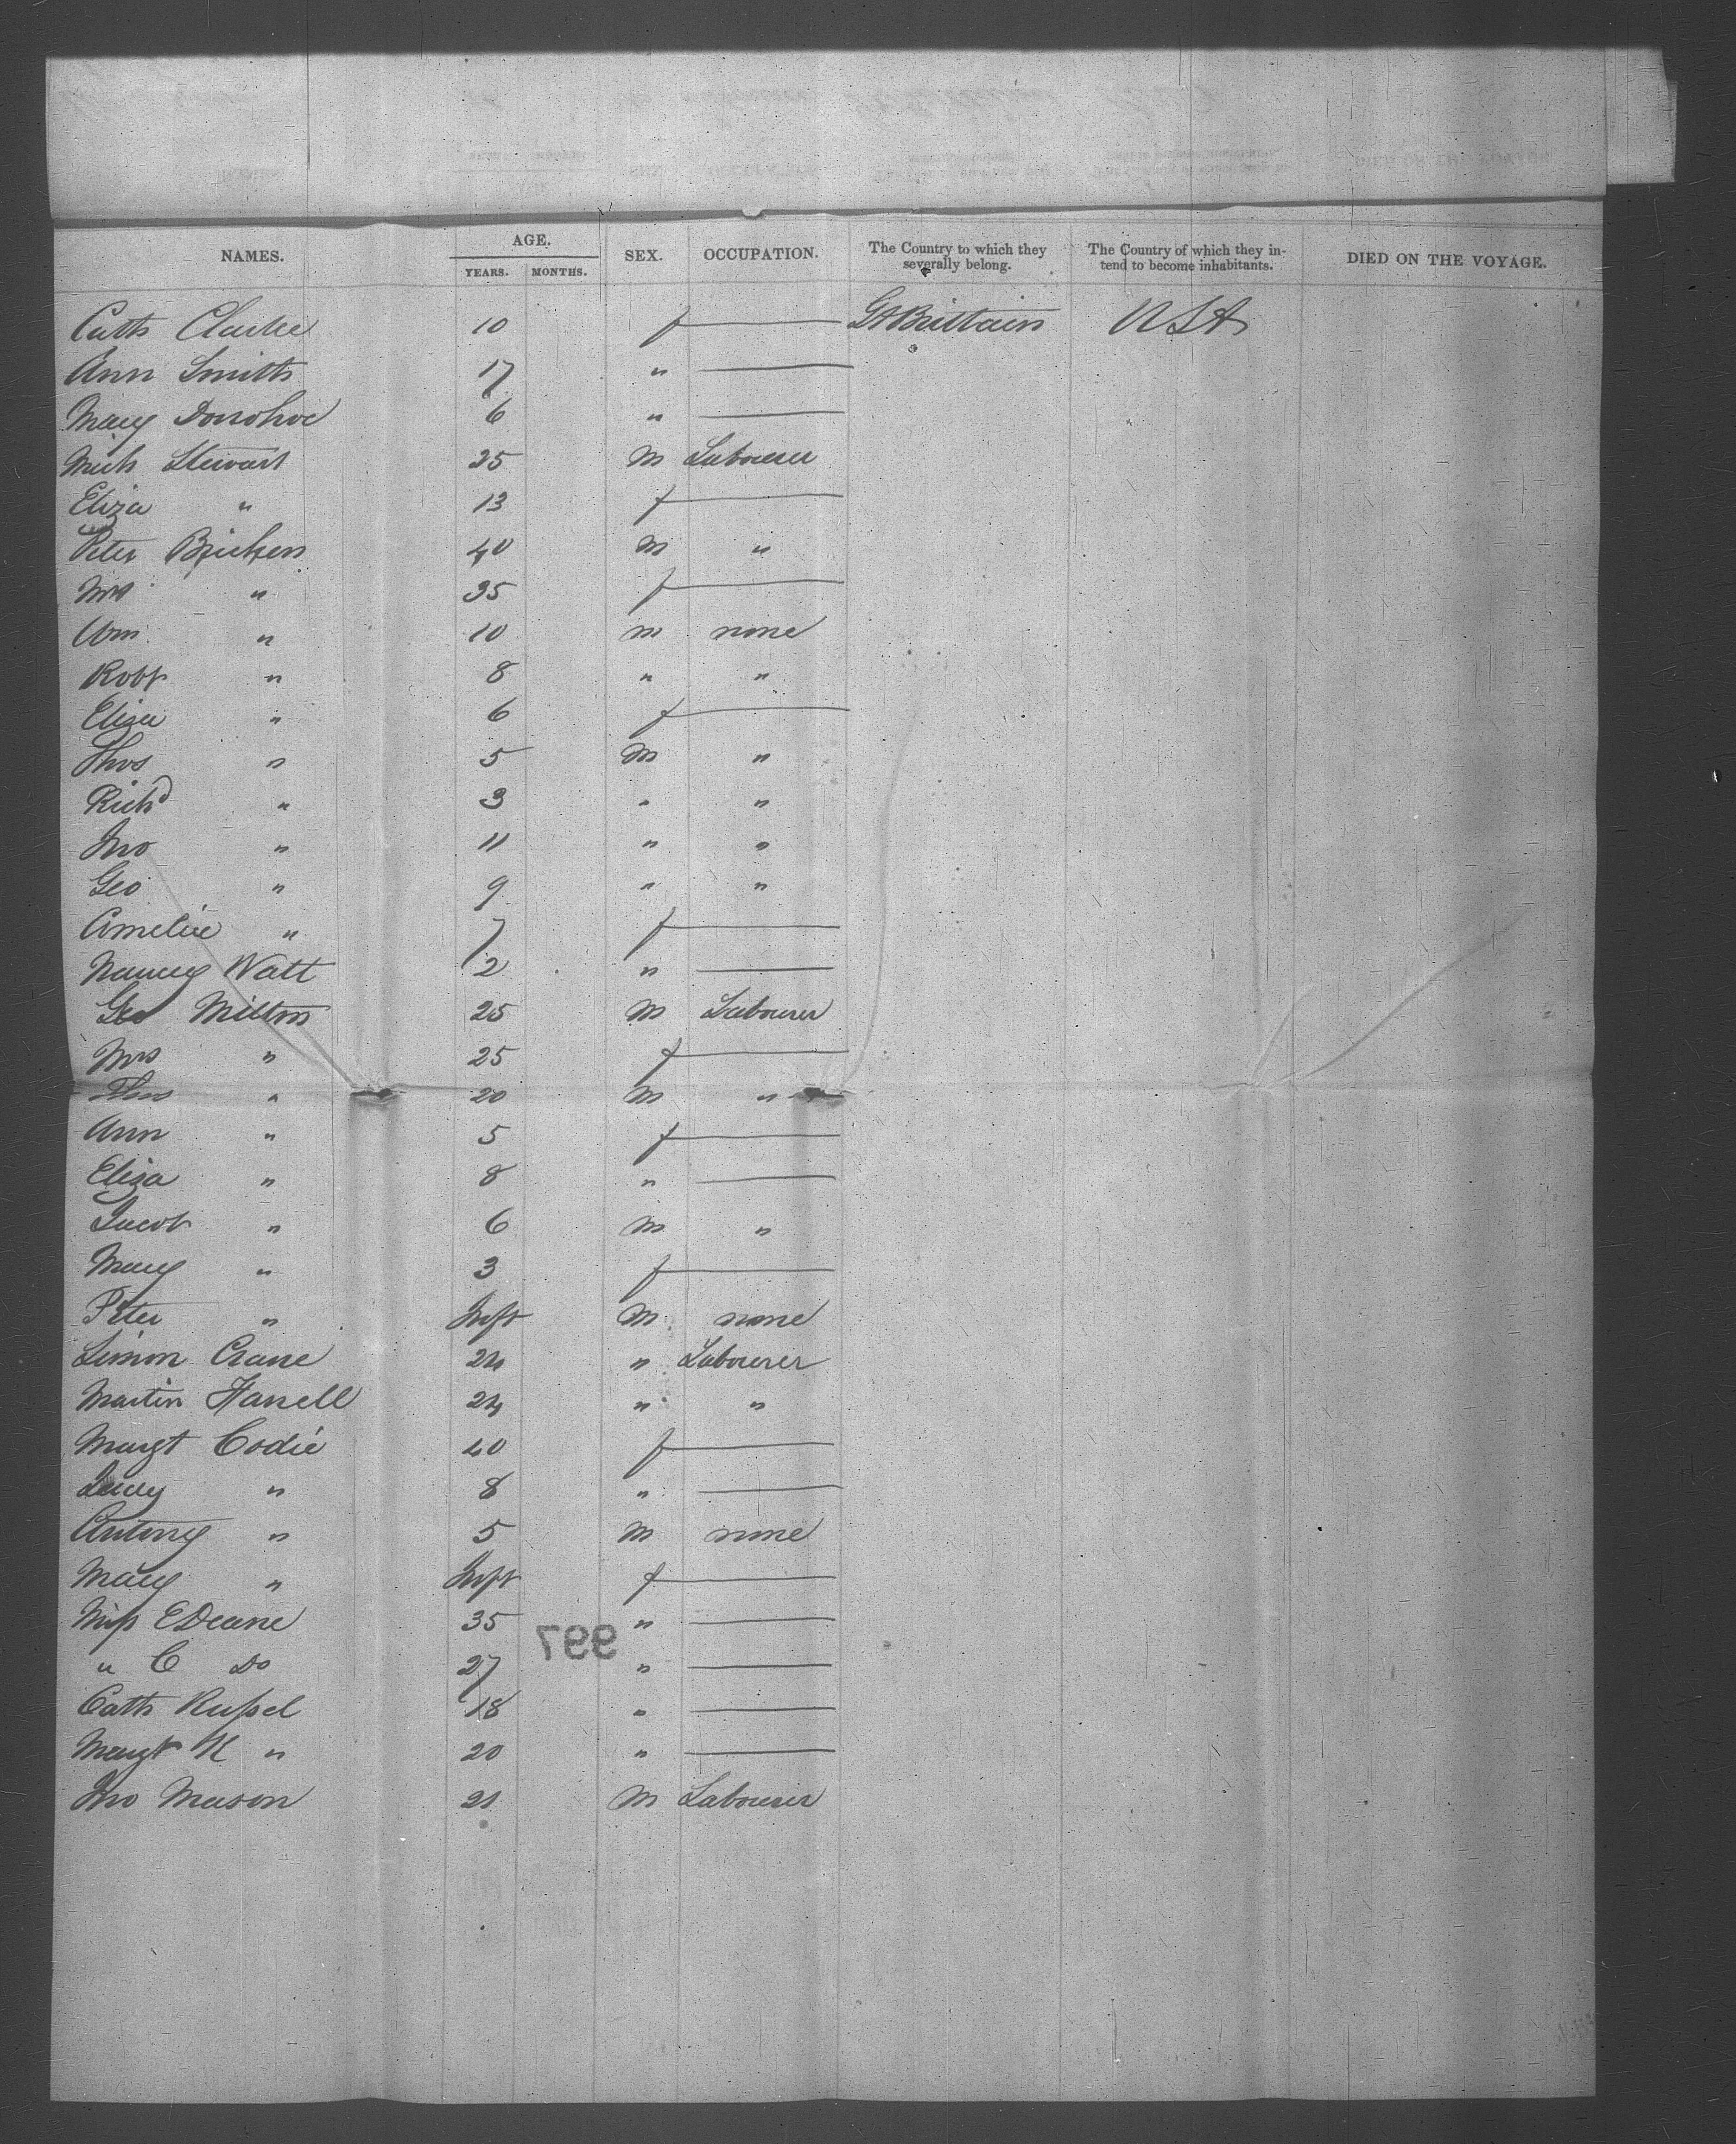 NAMES. AGE. YEARS. MONTHS. SEX. OCCUPATION. The Country to which they severally belong. The Country of which they intend to become inhabitants. DIED ON THE VOYAGE.
Cath Clarke 10 f — Gt Brittain USA
Ann Smith 17 " —
Mary Donohoe 6 " —
Mich Stewart 25 M Labourer
Eliza " 13 f —
Peter Bricken 40 M "
Mrs " 35 f —
Wm " 10 m none
Robt " 8 " "
Eliza " 6 f —
Thos " 5 M "
Richd " 3 " "
Jno " 11 " "
Geo " 9 " "
Amelia " 7 f —
Nancy Watt 2 " —
Geo Milton 25 M Labourer
Mrs " 25 f —
Thos " 20 M "
Ann " 5 f —
Eliza " 8 " —
Jacob " 6 M "
Mary " 3 f —
Peter " Inft M none
Simon Crane 24 " Labourer
Martin Harrell 24 " "
Margt Codie 40 f —
Lucy " 8 " —
Antony " 5 M none
Mary " Inft f —
Miss E Deane 35 " —
" C Do 27 " —
997
Cath Russel 18 " —
Margt K " 20 " —
Jno Mason 21 M Labourer